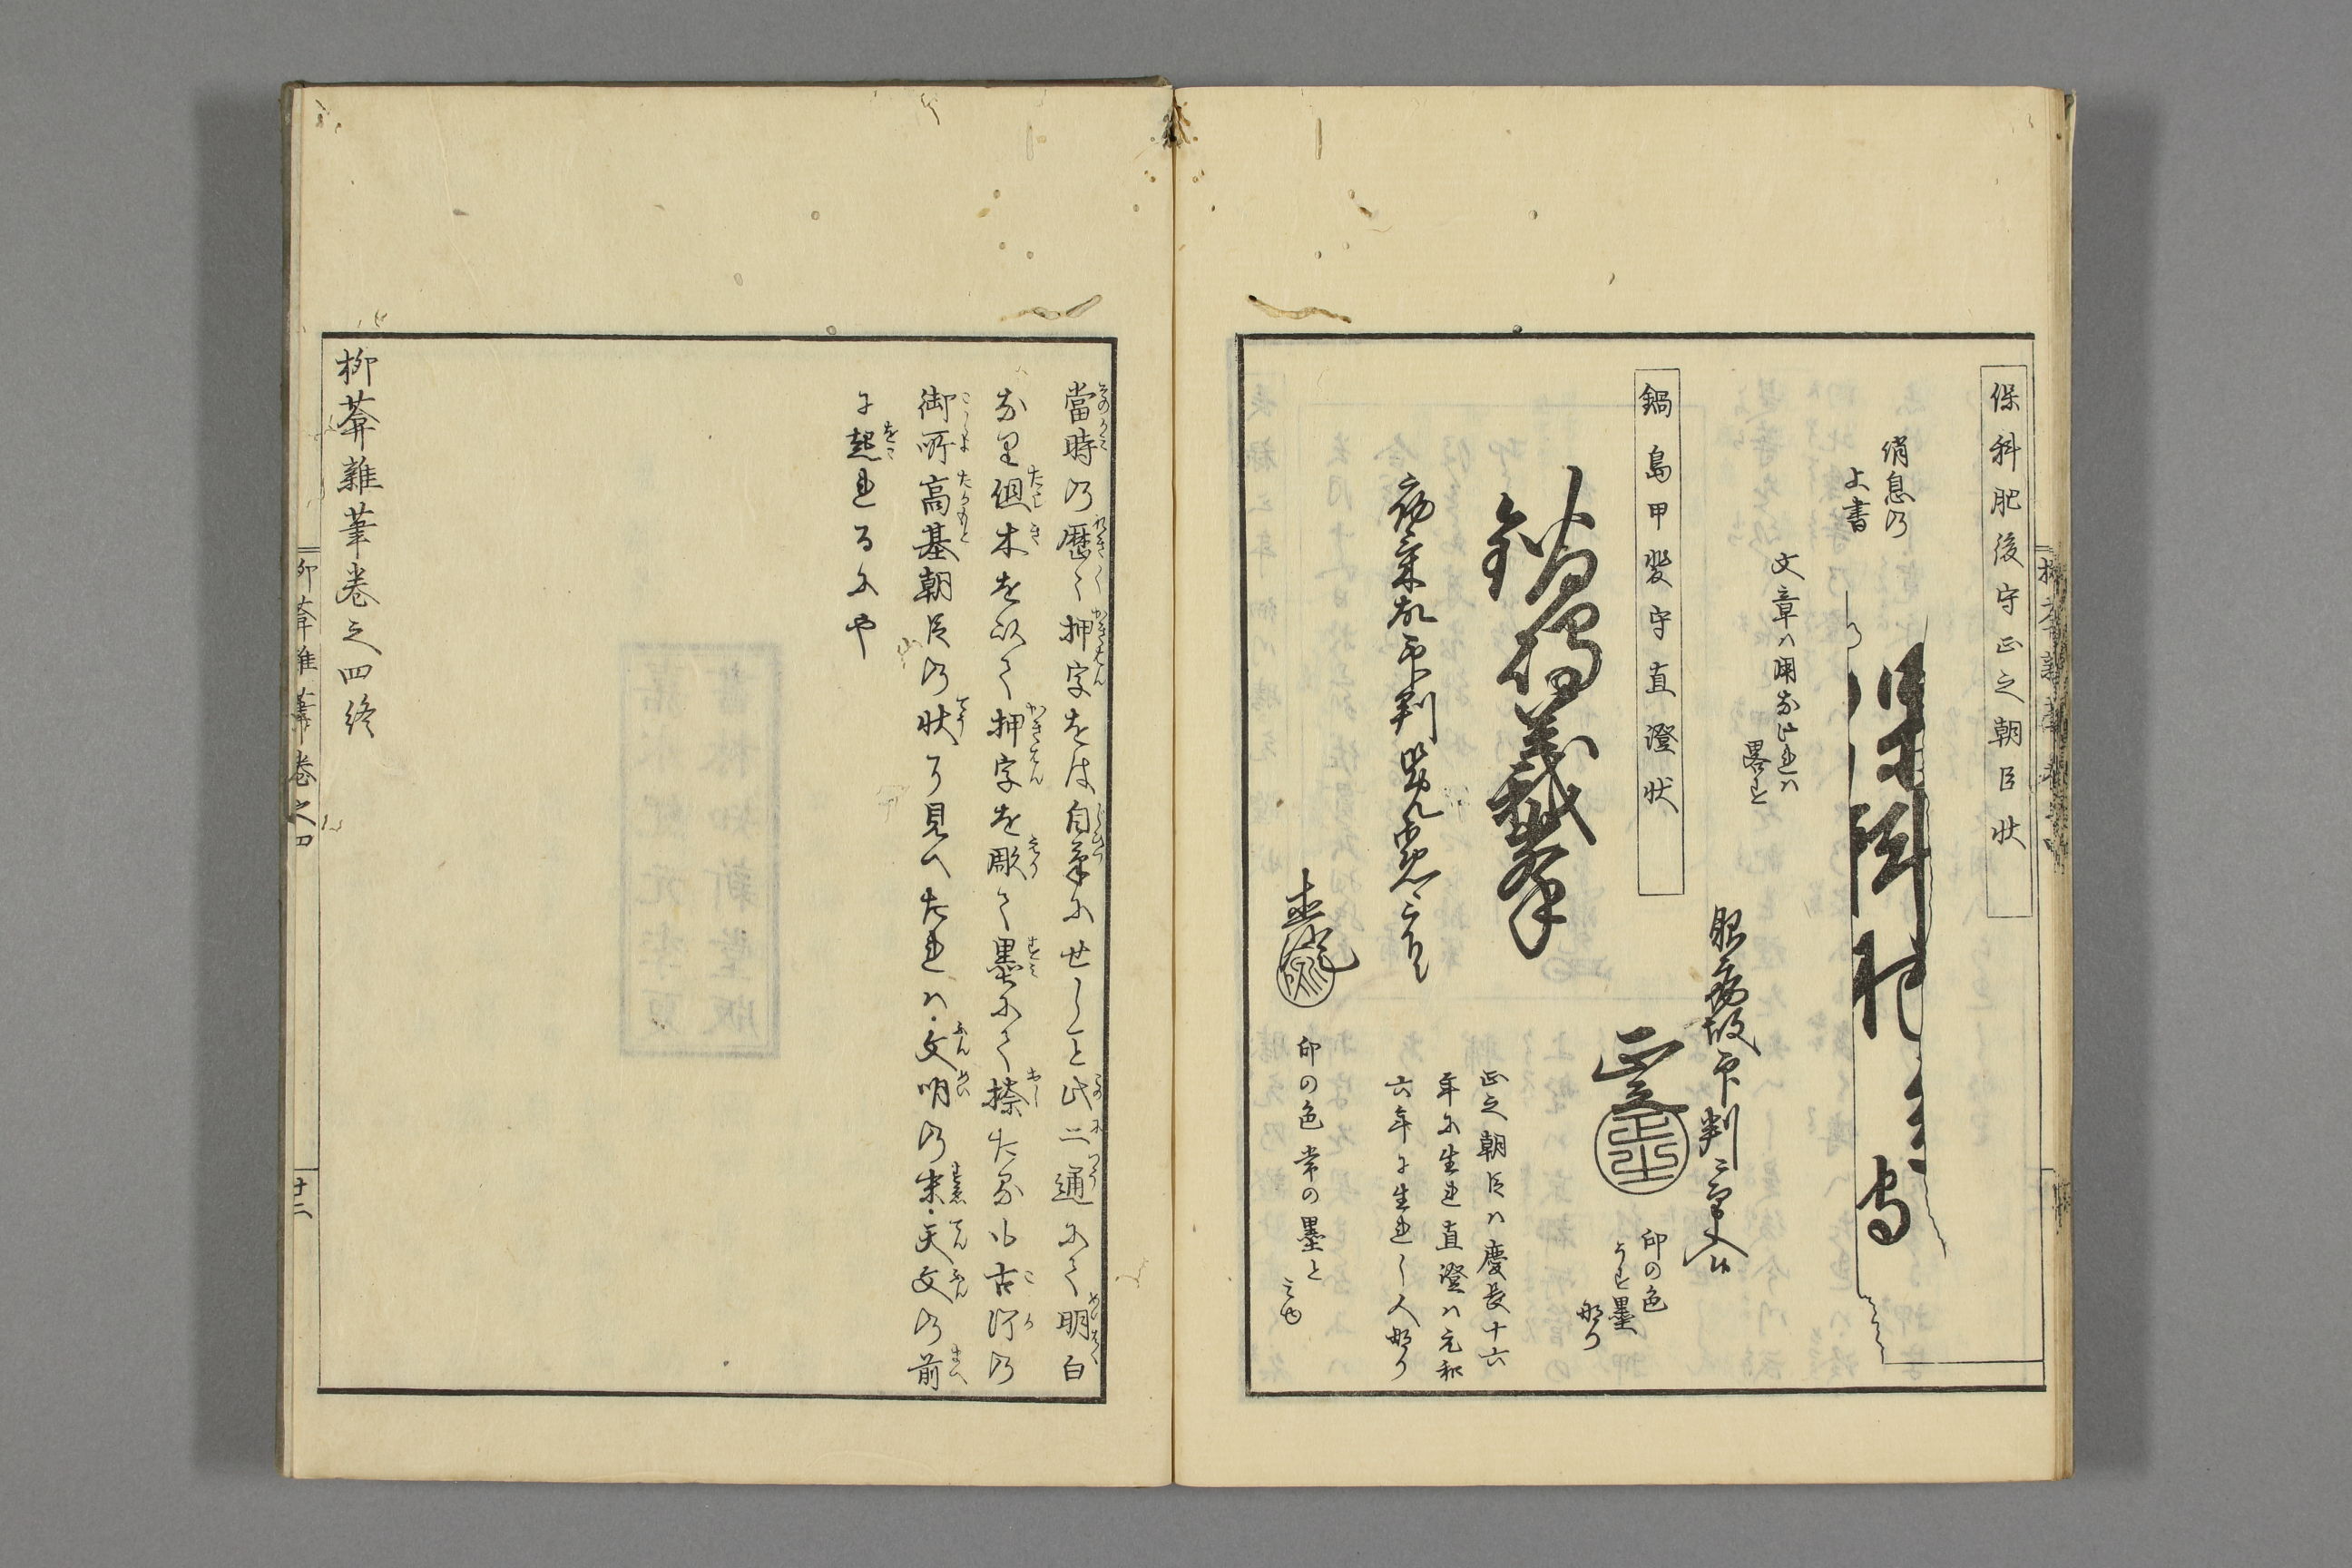 保科肥後守正之朝臣状
消息の
上書
保科肥後守
文章ハ用なければ
畧す
眼病故印判
正之
印の色
うす墨
なり
鍋島甲斐守直澄状
印判
直澄
正之朝臣ハ慶長十六
年に生れ直澄ハ元和
六年に生れし人なり
印の色常の墨と
當時の歴々押字をは自筆にせしこと此二通にて明白
なり但木を以て押字を彫て墨にて捺たるも古河の
御所高基朝臣の状に見へたれハ文明の末天文の前
に起れるにや
柳葊雜筆巻之四終
柳葊雜筆巻之四
十二